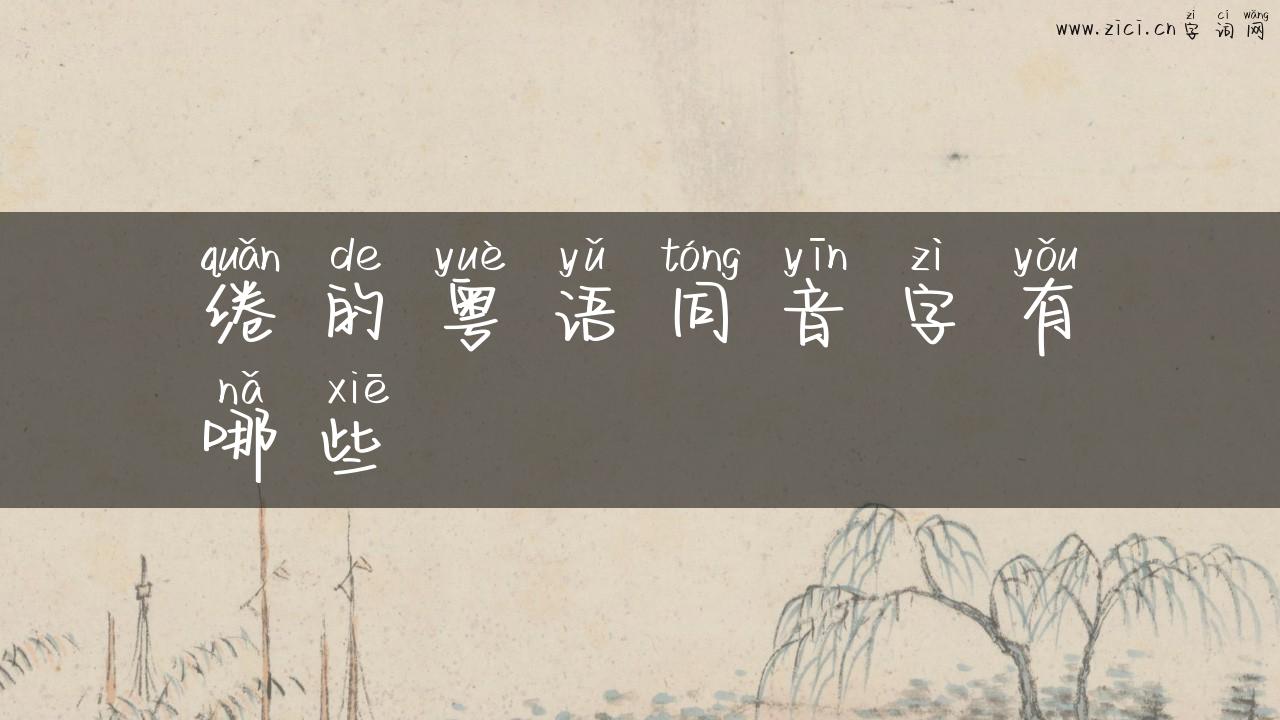 zì cí wǎng
www.zici.cn 字 词 网
quǎn de yuè yǔ tóng yīn zì yǒu
绻 的 粤 语 同 音 字 有
nǎ xiē
哪 些